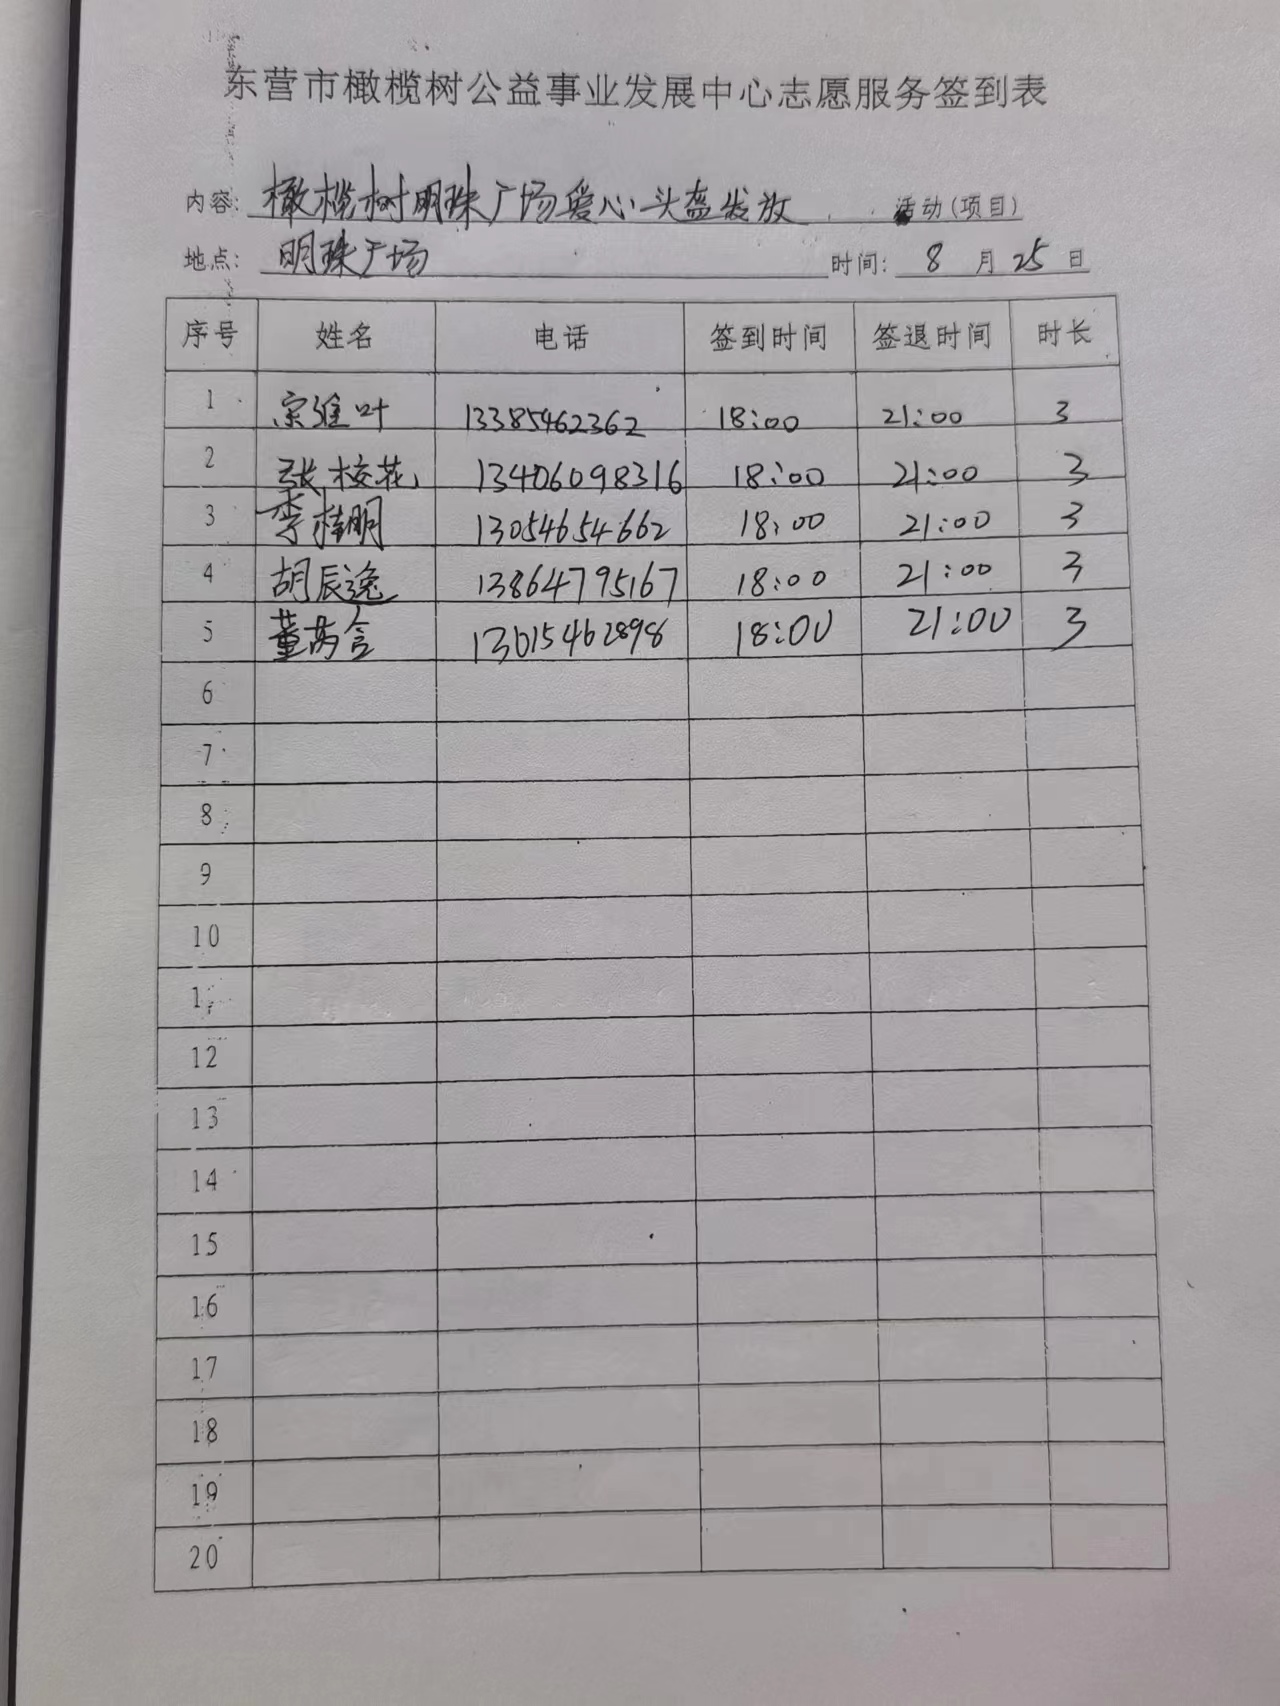 东营市橄榄树公益事业发展中心志愿服务签到表
内容: 橄榄树明珠广场爱心头盔发放 活动(项目)
地点: 明珠广场 时间: 8 月 25 日
序号 姓名 电话 签到时间 签退时间 时长
1 宗维叶 13385462362 18:00 21:00 3
2 张校花 13406098316 18:00 21:00 3
3 李桂明 13054654662 18:00 21:00 3
4 胡辰逸 13864795167 18:00 21:00 3
5 董芮含 13615462898 18:00 21:00 3
6
7
8
9
10
1
12
13
14
15
16
17
18
19
20